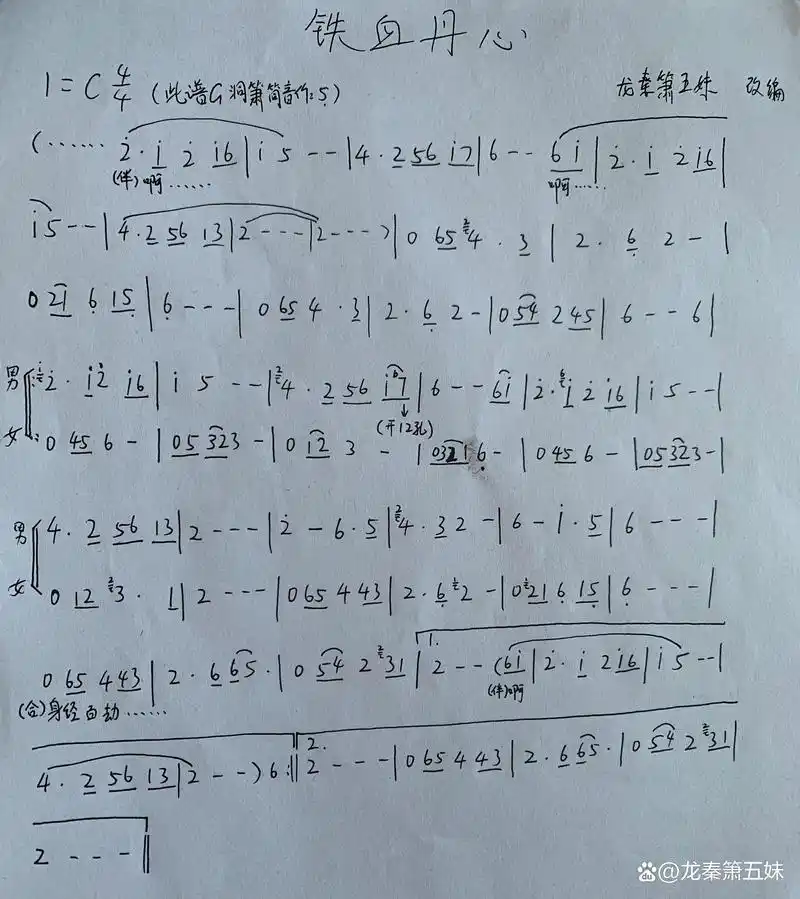 铁血丹心
1=C 4/4 (此谱G洞箫筒音作5̣)
龙秦箫五妹 改编
(…… 2̇· i̇ 2̇ i̇6 | i̇ 5 - - | 4· 2 56 i̇7 | 6 - - 6i̇ | 2̇· i̇ 2̇ i̇6 |
(伴)啊…… 啊……
i̇ 5 - - | 4· 2 56 13 | 2 - - - | 2 - - - ) | 0 65 ²4· 3 | 2· 6̣ 2 - |
0 21 6̣ 15̣ | 6̣ - - - | 0 65 4 · 3 | 2· 6̣ 2 - | 0 54 2 45 | 6 - - 6 |
男: 2̇· i̇2̇ i̇6 | i̇ 5 - - | ²4· 2 56 i̇7 | 6 - - 6i̇ | 2̇· i̇ 2̇ i̇6 | i̇ 5 - - |
(开12孔)
女: 0 45 6 - | 05 323 - | 0 12 3 - | 0321 6̣ - | 0 45 6 - | 05 323 - |
男 4· 2 56 13 | 2 - - - | 2̇ - 6· 5 | ²4· 3 2 - | 6 - i̇· 5 | 6 - - - |
女 0 12 ²3· 1 | 2 - - - | 0 65 4 43 | 2· 6̣ 2 - | 0 21 6̣ 15̣ | 6̣ - - - |
0 65 4 43 | 2· 6 65· | 0 54 2 ²31 | 1. 2 - - (6i̇ | 2̇· i̇ 2 i̇6 | i̇ 5 - - |
(合)身经百劫…… (伴)啊
4· 2 56 13 | 2 - - ) 6 :‖ 2. 2 - - - | 0 65 4 43 | 2· 6 65· | 0 54 2 ²31 |
2 - - - ‖
龙秦箫五妹